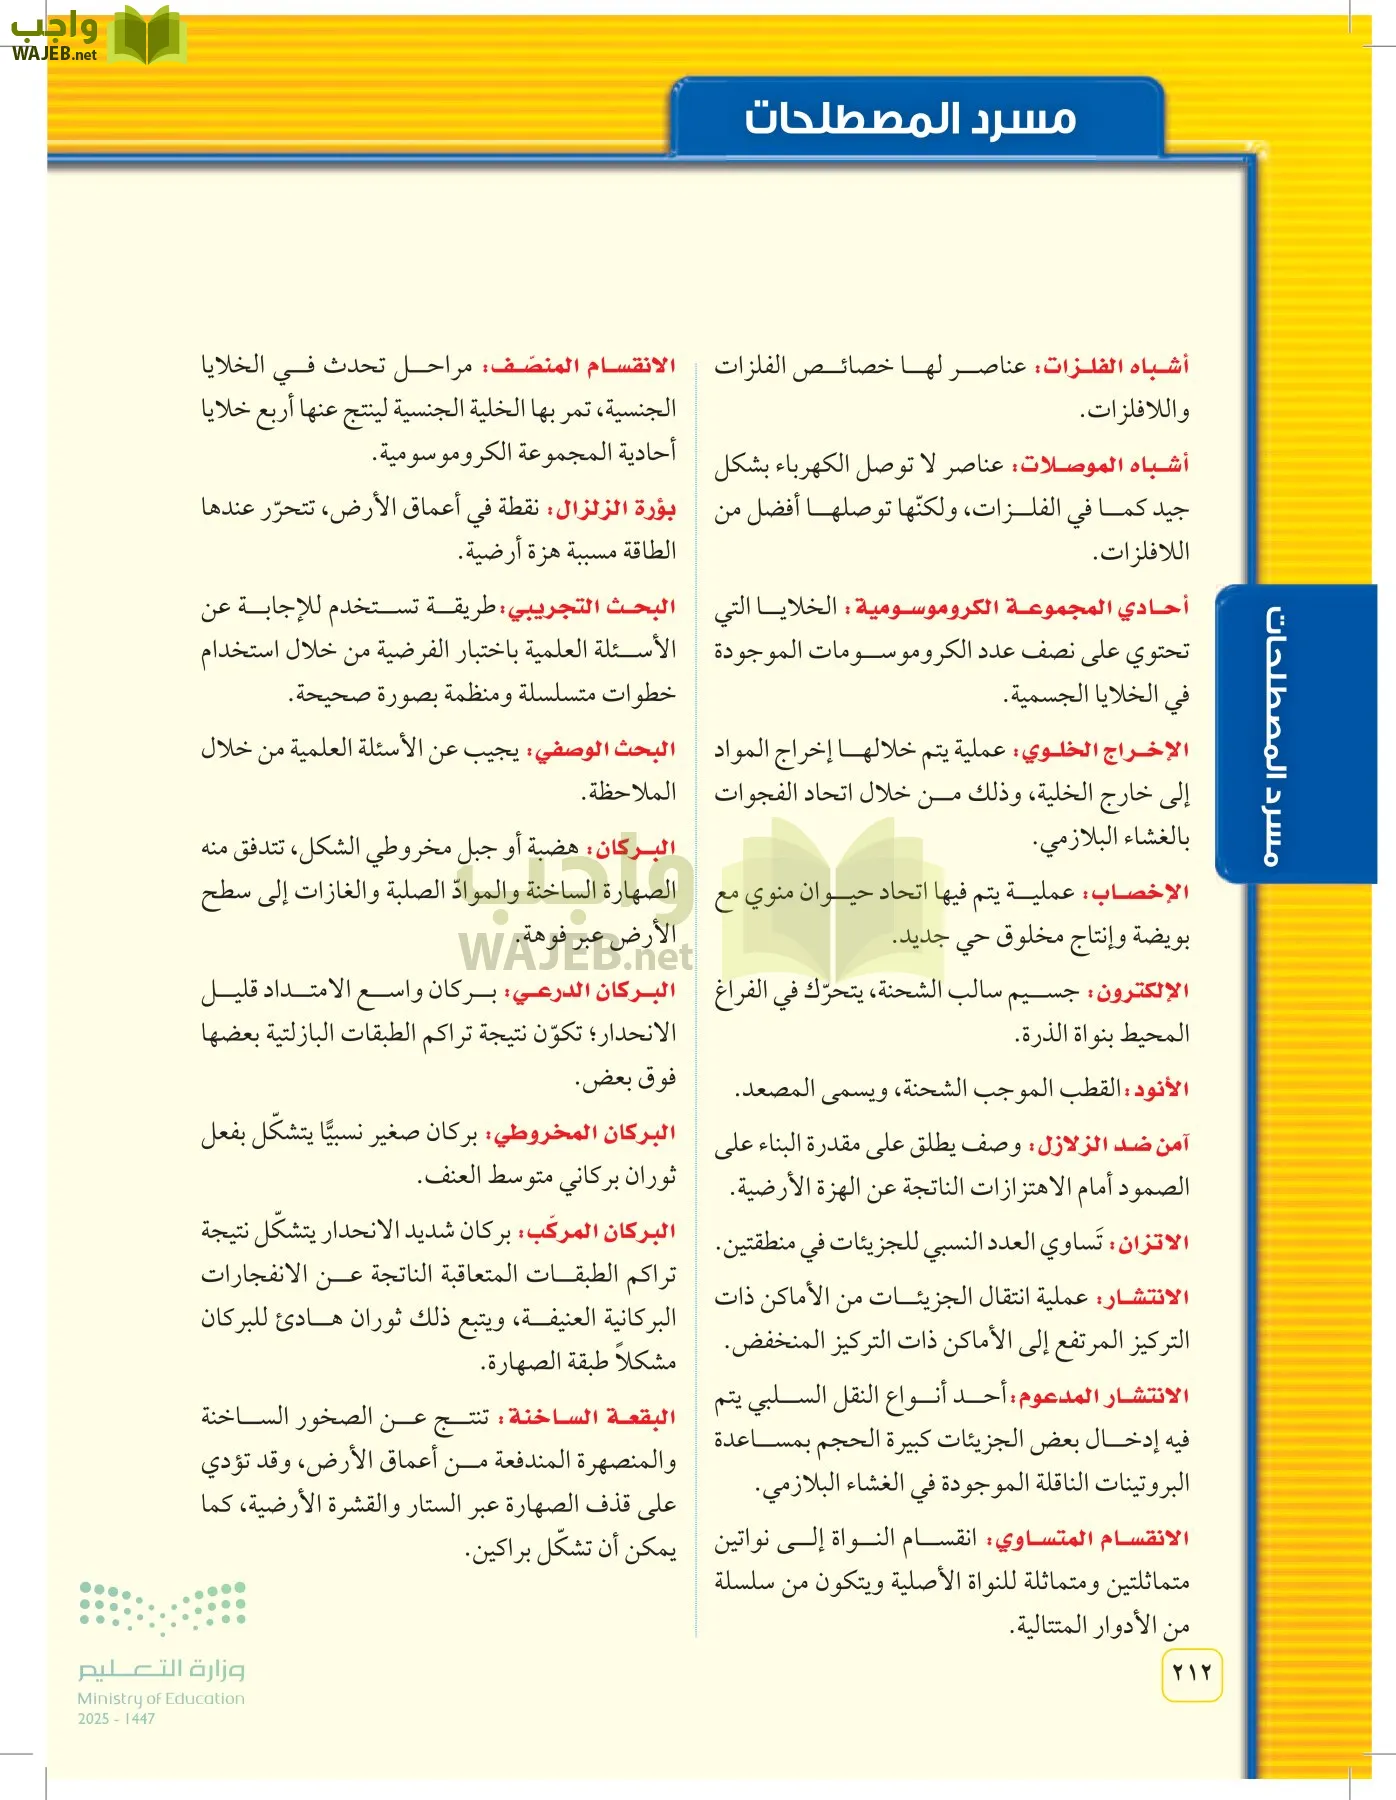 واجب
WAJEB.net
مسرد المصطلحات
أشباه الفلزات: عناصر لها خصائص الفلزات
واللافلزات.
أشباه الموصلات: عناصر لا توصل الكهرباء بشكل
جيد كما في الفلزات، ولكنّها توصلها أفضل من
اللافلزات.
أحادي المجموعة الكروموسومية: الخلايا التي
تحتوي على نصف عدد الكروموسومات الموجودة
في الخلايا الجسمية.
الإخراج الخلوي: عملية يتم خلالها إخراج المواد
إلى خارج الخلية، وذلك من خلال اتحاد الفجوات
بالغشاء البلازمي.
الإخصاب: عملية يتم فيها اتحاد حيوان منوي مع
بويضة وإنتاج مخلوق حي جديد.
الإلكترون: جسيم سالب الشحنة، يتحرّك في الفراغ
المحيط بنواة الذرة.
الأنود: القطب الموجب الشحنة، ويسمى المصعد.
آمن ضد الزلازل: وصف يطلق على مقدرة البناء على
الصمود أمام الاهتزازات الناتجة عن الهزة الأرضية.
الاتزان: تَساوي العدد النسبي للجزيئات في منطقتين.
الانتشار: عملية انتقال الجزيئات من الأماكن ذات
التركيز المرتفع إلى الأماكن ذات التركيز المنخفض.
الانتشار المدعوم: أحد أنواع النقل السلبي يتم
فيه إدخال بعض الجزيئات كبيرة الحجم بمساعدة
البروتينات الناقلة الموجودة في الغشاء البلازمي.
الانقسام المتساوي: انقسام النواة إلى نواتين
متماثلتين ومتماثلة للنواة الأصلية ويتكون من سلسلة
من الأدوار المتتالية.
الانقسام المنصّف: مراحل تحدث في الخلايا
الجنسية، تمر بها الخلية الجنسية لينتج عنها أربع خلايا
أحادية المجموعة الكروموسومية.
بؤرة الزلزال: نقطة في أعماق الأرض، تتحرّر عندها
الطاقة مسببة هزة أرضية.
البحث التجريبي: طريقة تستخدم للإجابة عن
الأسئلة العلمية باختبار الفرضية من خلال استخدام
خطوات متسلسلة ومنظمة بصورة صحيحة.
البحث الوصفي: يجيب عن الأسئلة العلمية من خلال
الملاحظة.
البركان: هضبة أو جبل مخروطي الشكل، تتدفق منه
الصهارة الساخنة والموادّ الصلبة والغازات إلى سطح
الأرض عبر فوهة.
البركان الدرعي: بركان واسع الامتداد قليل
الانحدار؛ تكوّن نتيجة تراكم الطبقات البازلتية بعضها
فوق بعض.
البركان المخروطي: بركان صغير نسبيًّا يتشكّل بفعل
ثوران بركاني متوسط العنف.
البركان المركّب: بركان شديد الانحدار يتشكّل نتيجة
تراكم الطبقات المتعاقبة الناتجة عن الانفجارات
البركانية العنيفة، ويتبع ذلك ثوران هادئ للبركان
مشكلاً طبقة الصهارة.
البقعة الساخنة: تنتج عن الصخور الساخنة
والمنصهرة المندفعة من أعماق الأرض، وقد تؤدي
على قذف الصهارة عبر الستار والقشرة الأرضية، كما
يمكن أن تشكّل براكين.
مسرد المصطلحات
واجب
WAJEB.net
وزارة التعليم
Ministry of Education
2025 - 1447
٢١٢